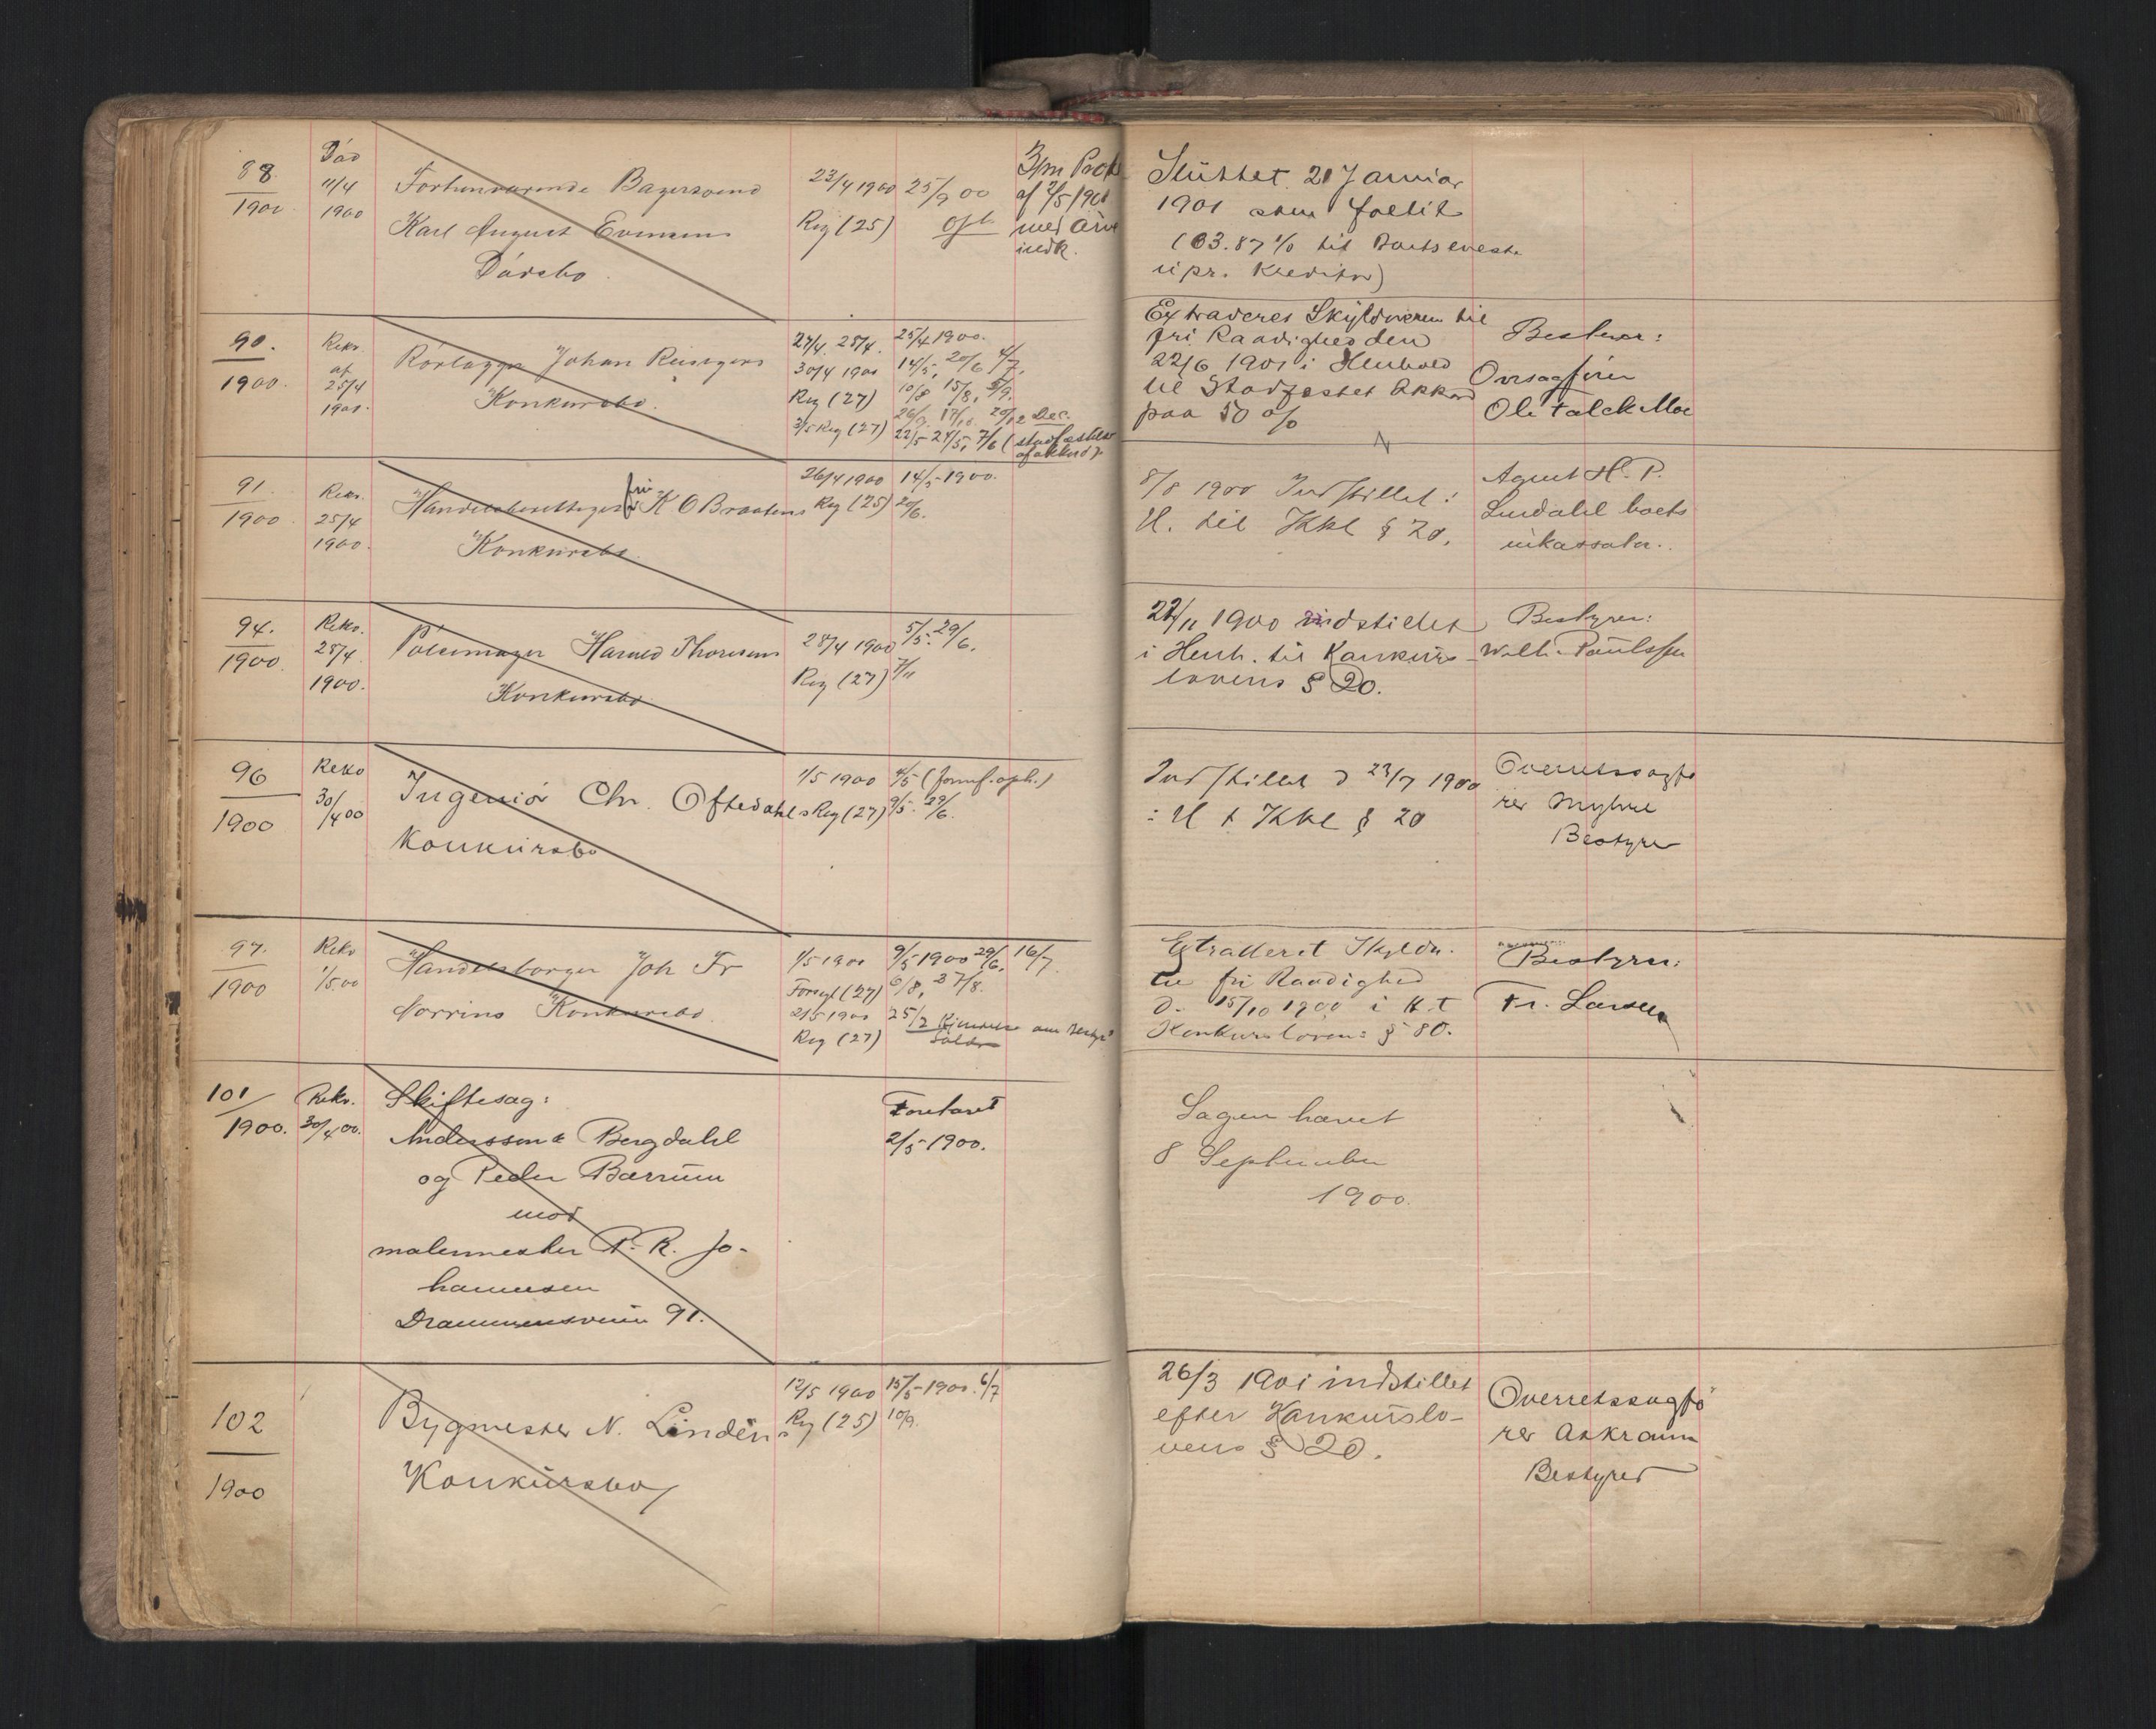 88
1900
Död
11/4
1900
Forhenværende Bagersvend
Karl August Evensens
Dödsbo
23/4 1900
Reg (25)
25/9 00
Oph.
af 2/5 1901
med
indk.
Sluttet 21 Januar
1901 som fallit
(63.87 % til
upr. Kreditor)
90.
1900.
Rekv.
af
25/4
1900.
Rörlægger Johan
Konkursbo.
27/4. 28/4.
30/4 1900
Reg (27)
3/5 Reg (27)
25/4 1900.
14/5, 20/6 4/7.
10/8 15/8, 5/9.
26/9. 17/10. 20/12 Dec.
22/5 24/5, 7/6 (stadfæstelse
af akkord)
Extraderes Skyldneren til
fri Raadighed den
22/6 1901 i Henhold
til Stadfæstet Akkord
paa 50 %
Bestyrer:
Ovrsagförer
Ole Falck Moe
91.
1900
Rekv.
25/4
1900.
Handelsberettiget fru K O Braatens
Konkursbo.
26/4 1900
Reg (25)
14/5 1900.
20/6.
8/8 1900 Indstillet:
H. til Kkl § 20.
Agent H. P.
Lindahl boets
inkassator.
94.
1900.
Rekv.
28/4
1900.
Pölsemager Harald Thoresens
Konkursbo
28/4 1900
Reg (27)
5/5. 29/6.
7/11
22/11 1900 indstillet
i Henh. til Konkurs-
lovens § 20.
Bestyrer:
Wilh. Paulssen
96
1900
Rekv
30/4 00
Ingeniör Chr. Oftedahls
Konkursbo
1/5 1900
Reg (27)
4/5 (forref. oph.)
9/5. 29/6.
Indstillet d 23/7 1900
i H t Kkl § 20
Overretssagfö
rer Myhre
Bestyrer
97.
1900
Rekv
1/5.00
Handelsborger Joh Fr
Norrins Konkursbo.
1/5 1900
Forsegl (27)
2/5 1900
Reg (27)
9/5 1900 29/6. 16/7.
6/8, 27/8.
25/2 Kjendelse om
Extraderet Skyldn.
til fri Raadighed
d. 15/10 1900 i H. t
Konkursloven: § 80.
Bestyrer:
Fr. Larsen
101/
1900.
Rekv.
30/4 00.
Skiftesag:
Andersson & Bergdahl
og Peder Bærrum
mod
malermester P. R. Jo-
hannesen
Drammensveien 91.
Foretaget
2/5 1900.
Sagen hævet
8 September
1900.
102
1900
Bygmester N. Lindéns
Konkursbo
12/5 1900
Reg (25)
15/5 1900. 6/7
10/9.
26/3 1901 indstillet
efter Konkurslo-
vens § 20.
Overretssagfö
rer Askram
Bestyrer